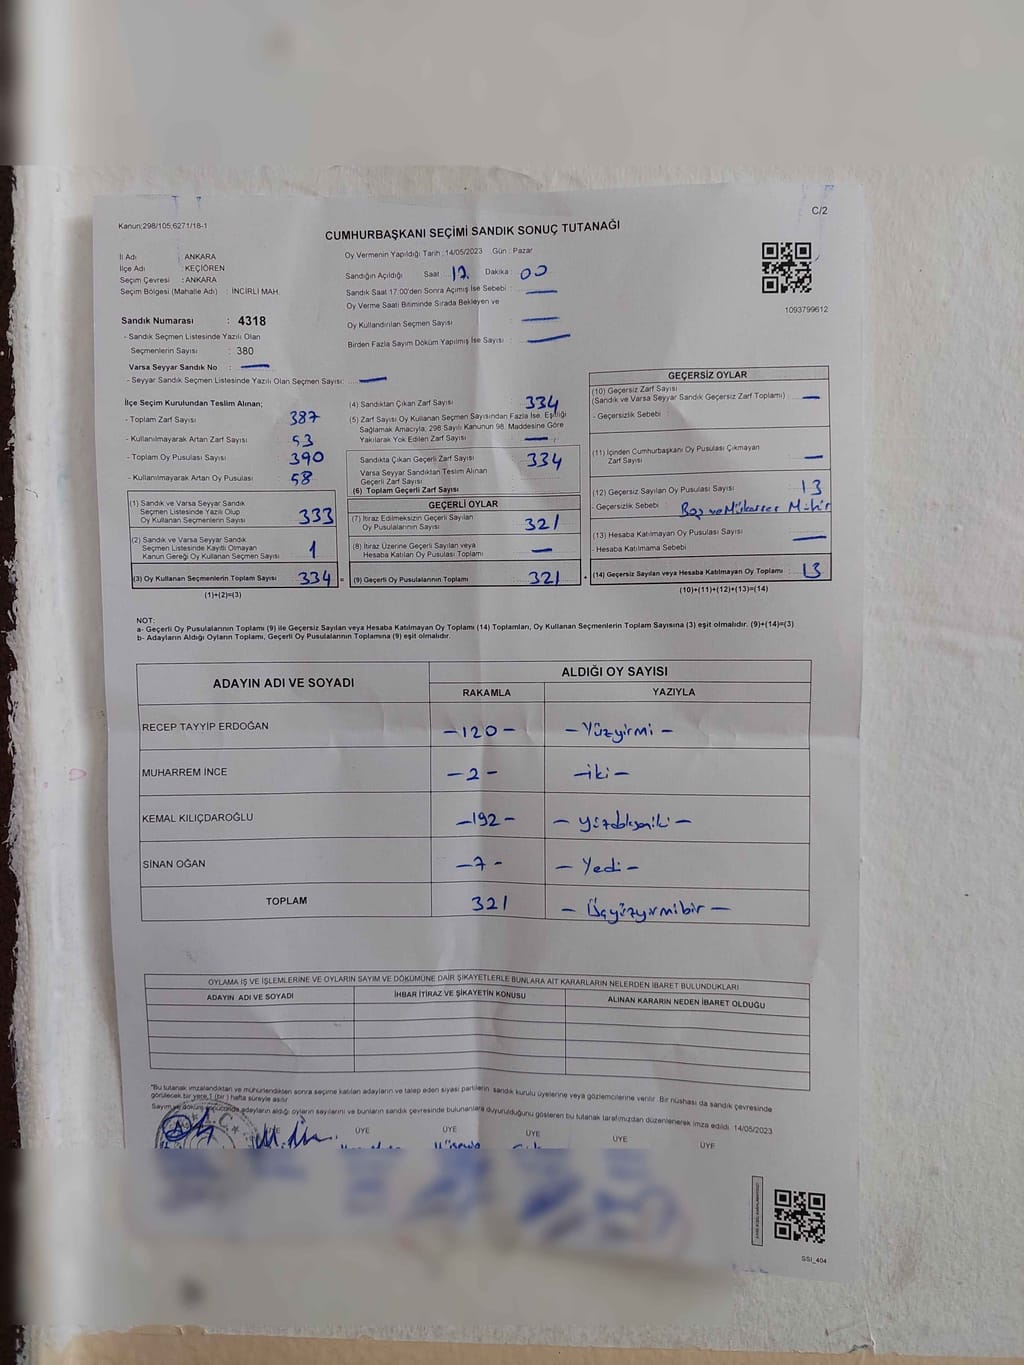 Kanun;298/105;6271/18-1
C/2
CUMHURBAŞKANI SEÇİMİ SANDIK SONUÇ TUTANAĞI
İl Adı : ANKARA
İlçe Adı : KEÇİÖREN
Seçim Çevresi : ANKARA
Seçim Bölgesi (Mahalle Adı) : İNCİRLİ MAH.
Sandık Numarası : 4318
- Sandık Seçmen Listesinde Yazılı Olan
Seçmenlerin Sayısı : 380
Varsa Seyyar Sandık No : —
- Seyyar Sandık Seçmen Listesinde Yazılı Olan Seçmen Sayısı: —
Oy Vermenin Yapıldığı Tarih : 14/05/2023 Gün : Pazar
Sandığın Açıldığı Saat : 17 Dakika : 00
Sandık Saat 17.00'den Sonra Açımış İse Sebebi : —
Oy Verme Saati Bitiminde Sırada Bekleyen ve
Oy Kullandırılan Seçmen Sayısı : —
Birden Fazla Sayım Döküm Yapılmış İse Sayısı : —
1093799612
İlçe Seçim Kurulundan Teslim Alınan;
- Toplam Zarf Sayısı : 387
- Kullanılmayarak Artan Zarf Sayısı : 53
- Toplam Oy Pusulası Sayısı : 390
- Kullanılmayarak Artan Oy Pusulası : 58
(1) Sandık ve Varsa Seyyar Sandık
Seçmen Listesinde Yazılı Olup
Oy Kullanan Seçmenlerin Sayısı : 333
(2) Sandık ve Varsa Seyyar Sandık
Seçmen Listesinde Kayıtlı Olmayan
Kanun Gereği Oy Kullanan Seçmen Sayısı : 1
(3) Oy Kullanan Seçmenlerin Toplam Sayısı : 334 =
(1)+(2)=(3)
(4) Sandıktan Çıkan Zarf Sayısı : 334
(5) Zarf Sayısı Oy Kullanan Seçmen Sayısından Fazla İse, Eşitliği
Sağlamak Amacıyla, 298 Sayılı Kanunun 98. Maddesine Göre
Yakılarak Yok Edilen Zarf Sayısı : —
Sandıkta Çıkan Geçerli Zarf Sayısı : 334
Varsa Seyyar Sandıktan Teslim Alınan
Geçerli Zarf Sayısı :
(6) Toplam Geçerli Zarf Sayısı
GEÇERLİ OYLAR
(7) İtiraz Edilmeksizin Geçerli Sayılan
Oy Pusulalarının Sayısı : 321
(8) İtiraz Üzerine Geçerli Sayılan veya
Hesaba Katılan Oy Pusulası Toplamı : —
(9) Geçerli Oy Pusulalarının Toplamı : 321 +
GEÇERSİZ OYLAR
(10) Geçersiz Zarf Sayısı
(Sandık ve Varsa Seyyar Sandık Geçersiz Zarf Toplamı) : —
- Geçersizlik Sebebi :
(11) İçinden Cumhurbaşkanı Oy Pusulası Çıkmayan
Zarf Sayısı : —
(12) Geçersiz Sayılan Oy Pusulası Sayısı : 13
- Geçersizlik Sebebi : Boş ve Mükerrer Mühür
(13) Hesaba Katılmayan Oy Pusulası Sayısı : —
- Hesaba Katılmama Sebebi :
(14) Geçersiz Sayılan veya Hesaba Katılmayan Oy Toplamı : 13
(10)+(11)+(12)+(13)=(14)
NOT:
a- Geçerli Oy Pusulalarının Toplamı (9) ile Geçersiz Sayılan veya Hesaba Katılmayan Oy Toplamı (14) Toplamları, Oy Kullanan Seçmenlerin Toplam Sayısına (3) eşit olmalıdır. (9)+(14)=(3)
b- Adayların Aldığı Oyların Toplamı, Geçerli Oy Pusulalarının Toplamına (9) eşit olmalıdır.
ADAYIN ADI VE SOYADI ALDIĞI OY SAYISI
RAKAMLA YAZIYLA
RECEP TAYYİP ERDOĞAN -120- -Yüzyirmi-
MUHARREM İNCE -2- -iki-
KEMAL KILIÇDAROĞLU -192- -yüzdoksaniki-
SİNAN OĞAN -7- -Yedi-
TOPLAM 321 -Üçyüzyirmibir-
OYLAMA İŞ VE İŞLEMLERİNE VE OYLARIN SAYIM VE DÖKÜMÜNE DAİR ŞİKAYETLERLE BUNLARA AİT KARARLARIN NELERDEN İBARET BULUNDUKLARI
ADAYIN ADI VE SOYADI İHBAR İTİRAZ VE ŞİKAYETİN KONUSU ALINAN KARARIN NEDEN İBARET OLDUĞU
"Bu tutanak imzalandıktan ve mühürlendikten sonra seçime katılan adayların ve talep eden siyasi partilerin sandık kurulu üyelerine veya gözlemcilerine verilir. Bir nüshası da sandık çevresinde
görülecek bir yere 1 (bir) hafta süreyle asılır.
Sayım ve döküm sonucunda adayların aldığı oyların sayılarını ve bunların sandık çevresinde bulunanlara duyurulduğunu gösteren bu tutanak tarafımızdan düzenlenerek imza edildi. 14/05/2023
ÜYE ÜYE ÜYE ÜYE ÜYE ÜYE
SSI_404